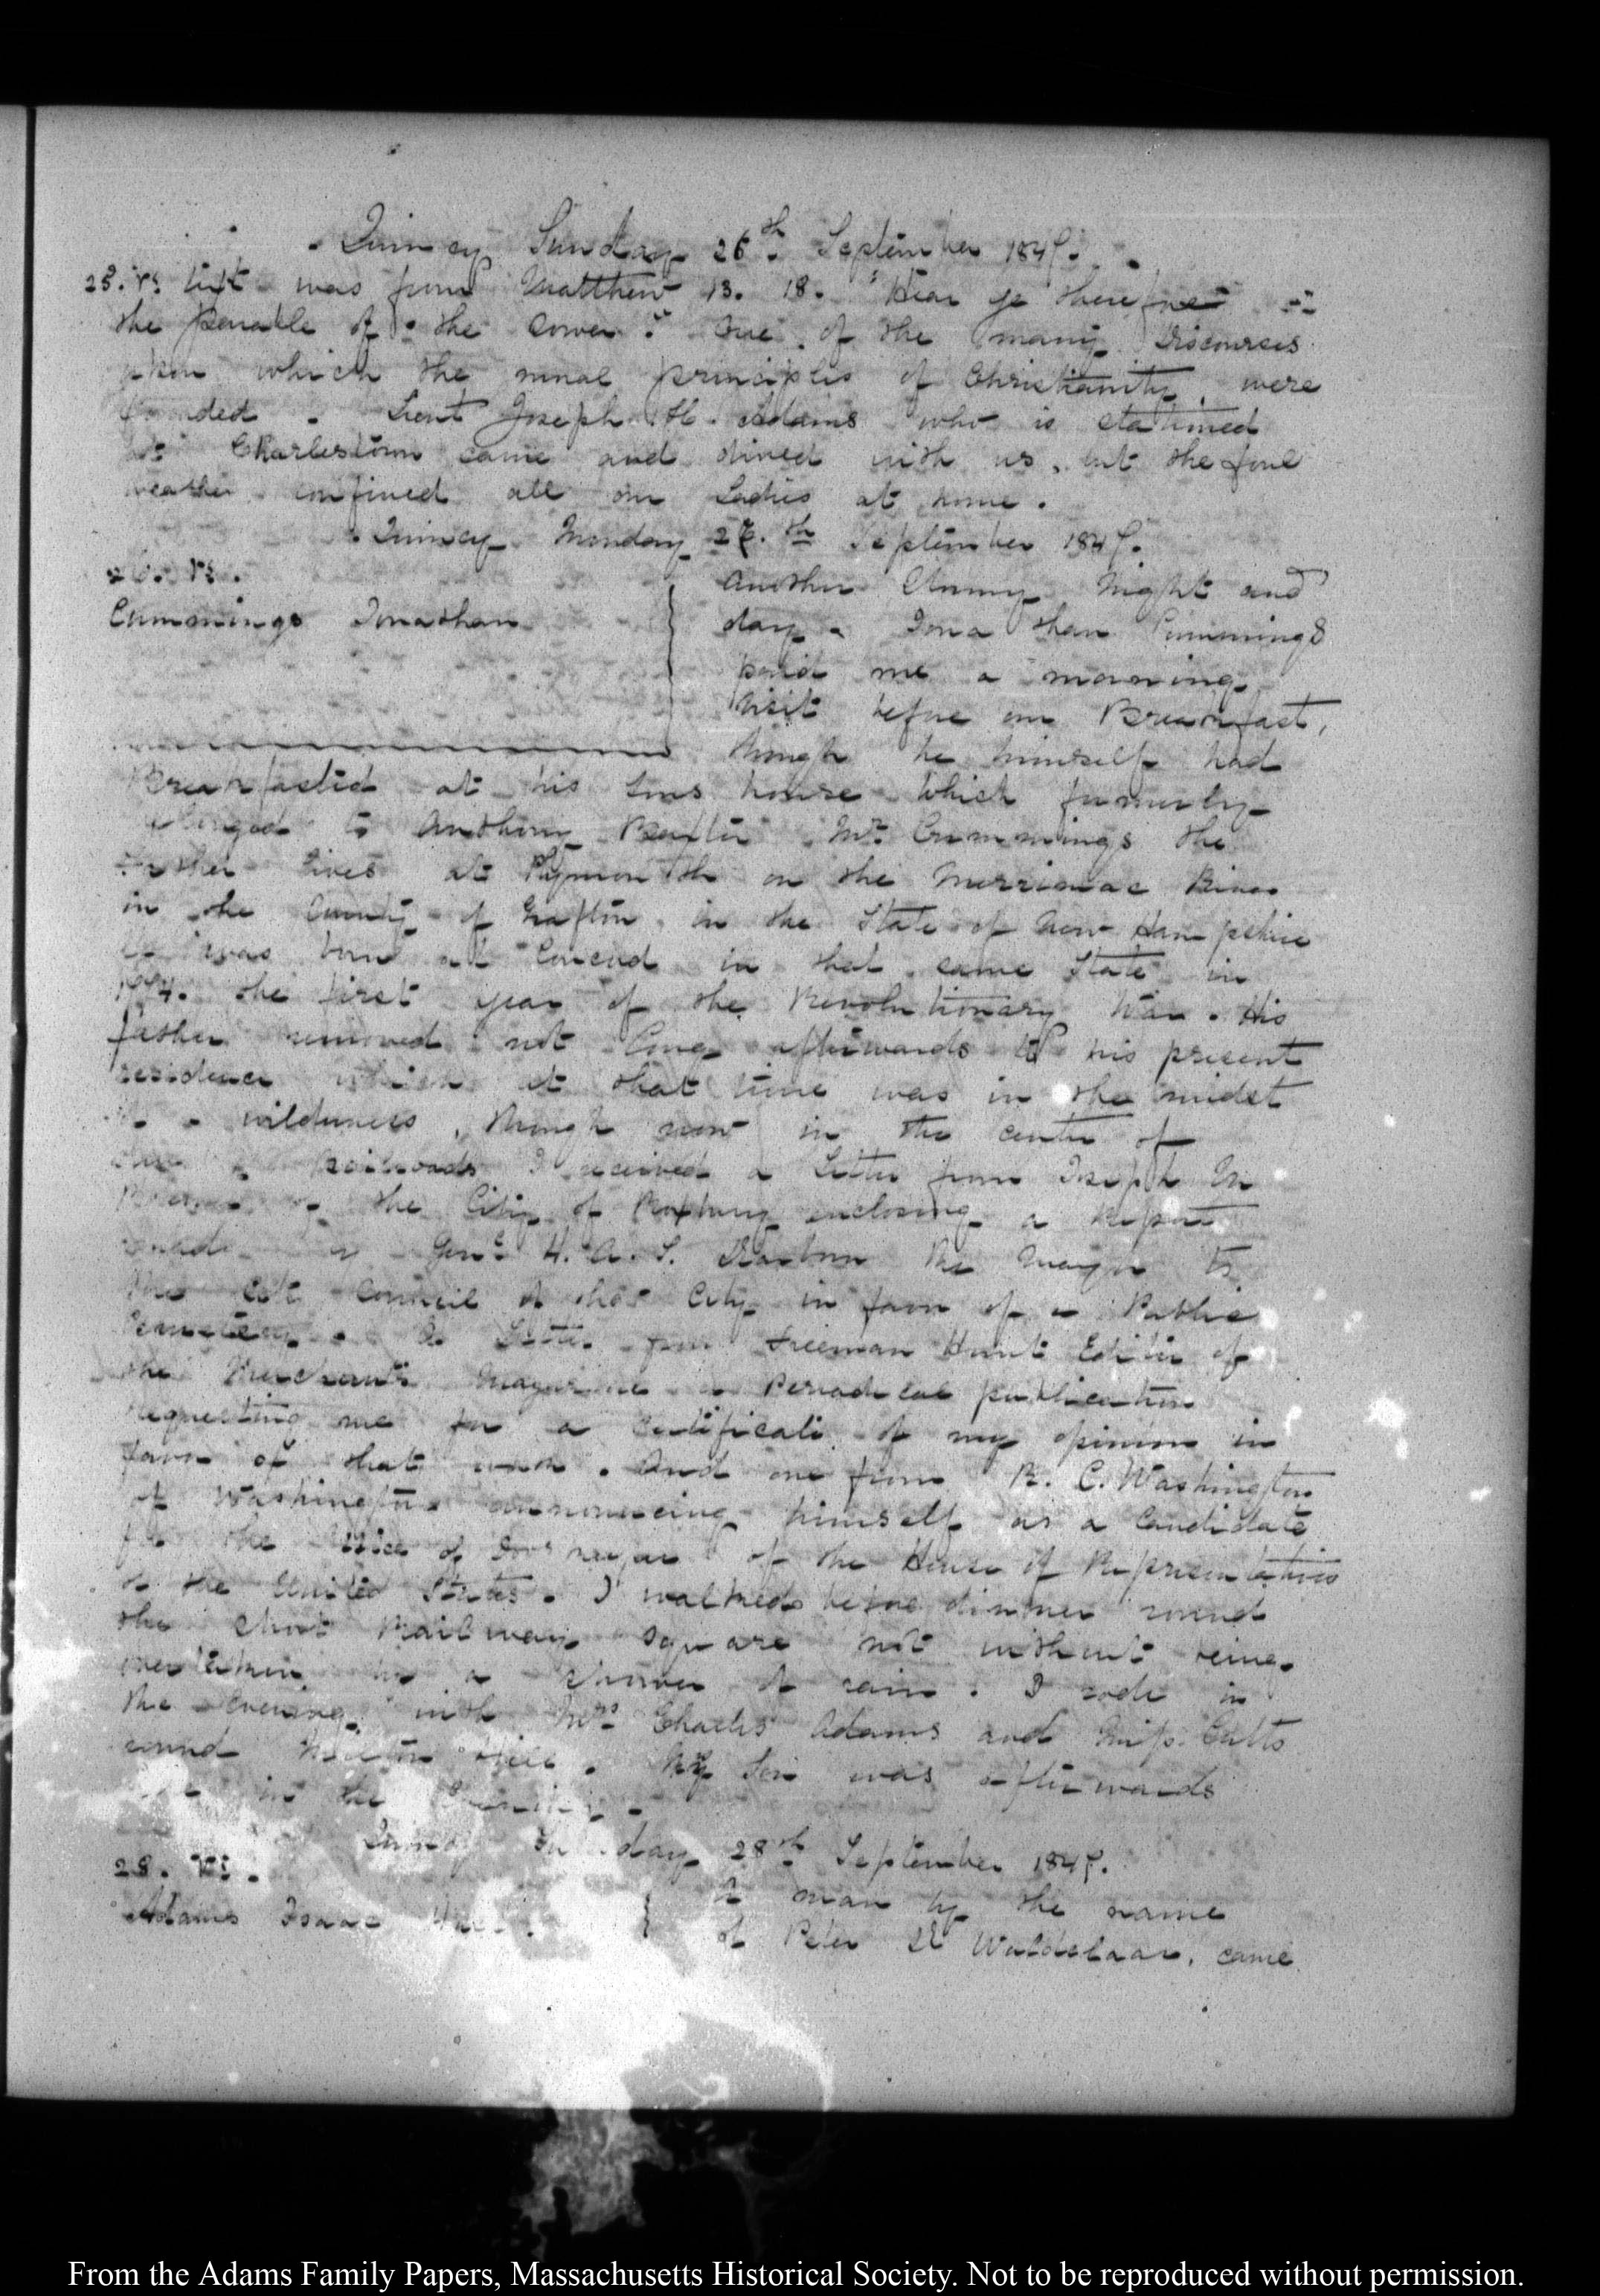 Quincy Sunday 26th. September 1847.
text was from Matthew 13. 18. "Hear ye therefore
the parable of the sower." One of the many discourses
upon which the moral principles of Christianity were
founded. Lieut Joseph H. Adams who is stationed
at Charlestown came and dined with us, but the foul
weather confined all our Ladies at home.
Quincy Monday 27.th September 1847.
Cummings Jonathan
Another Night and
day. Jonathan Cummings
paid me a morning
visit before our Breakfast,
though he himself had
Breakfasted at his Sons house which formerly
belonged to Anthony Mr. Cummings the
father lives at Plymouth on the Merrimac River
in the County of Grafton in the State of New Hampshire
He was born at Concord in that same State in
the first year of the Revolutionary War. His
father removed not long afterwards to his present
residence which at that time was in the midst
of a wilderness, though now in the centre of
railroads I received a Letter from Joseph
of the City of Roxbury enclosing a Report
made by Genl. H. A. S. Dearborn the Mayor to
the City Council of that City in favor of a Public
Cemetery. A Letter from Freeman Hunt Editor of
the Merchant's Magazine a Periodical publication
requesting me for a certificate of my opinion in
favor of that work. And one from B. C. Washington
of Washington announcing himself as a Candidate
for the Office of of the House of Representatives
of the United States. I walked before dinner round
the short Railway square not without being
overtaken by a shower of rain. I rode in
the evening with Mrs. Charles Adams and Miss Cutts
round Milton Hill. My Son was afterwards
in the Evening.
Quincy Tuesday 28th September 1847.
Adams Isaac
A man by the name
of Peter came
From the Adams Family Papers, Massachusetts Historical Society. Not to be reproduced without permission.